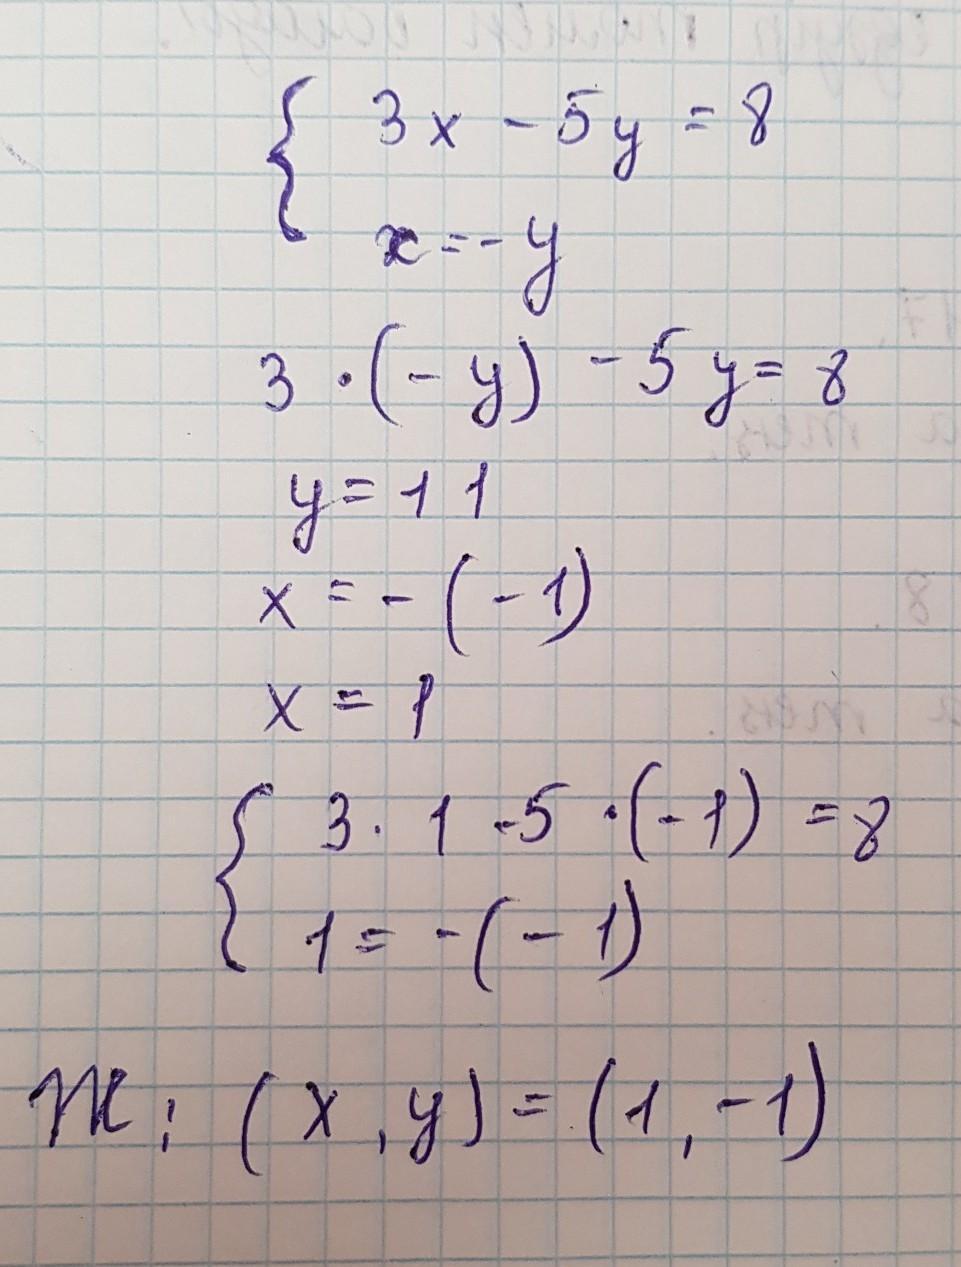 { 3x - 5y = 8
x = - y
3 · (- y) - 5y = 8
y = 1 1
x = - (- 1)
x = 1
{ 3 · 1 - 5 · (- 1) = 8
1 = - (- 1)
Ж: (x, y) = (1, -1)